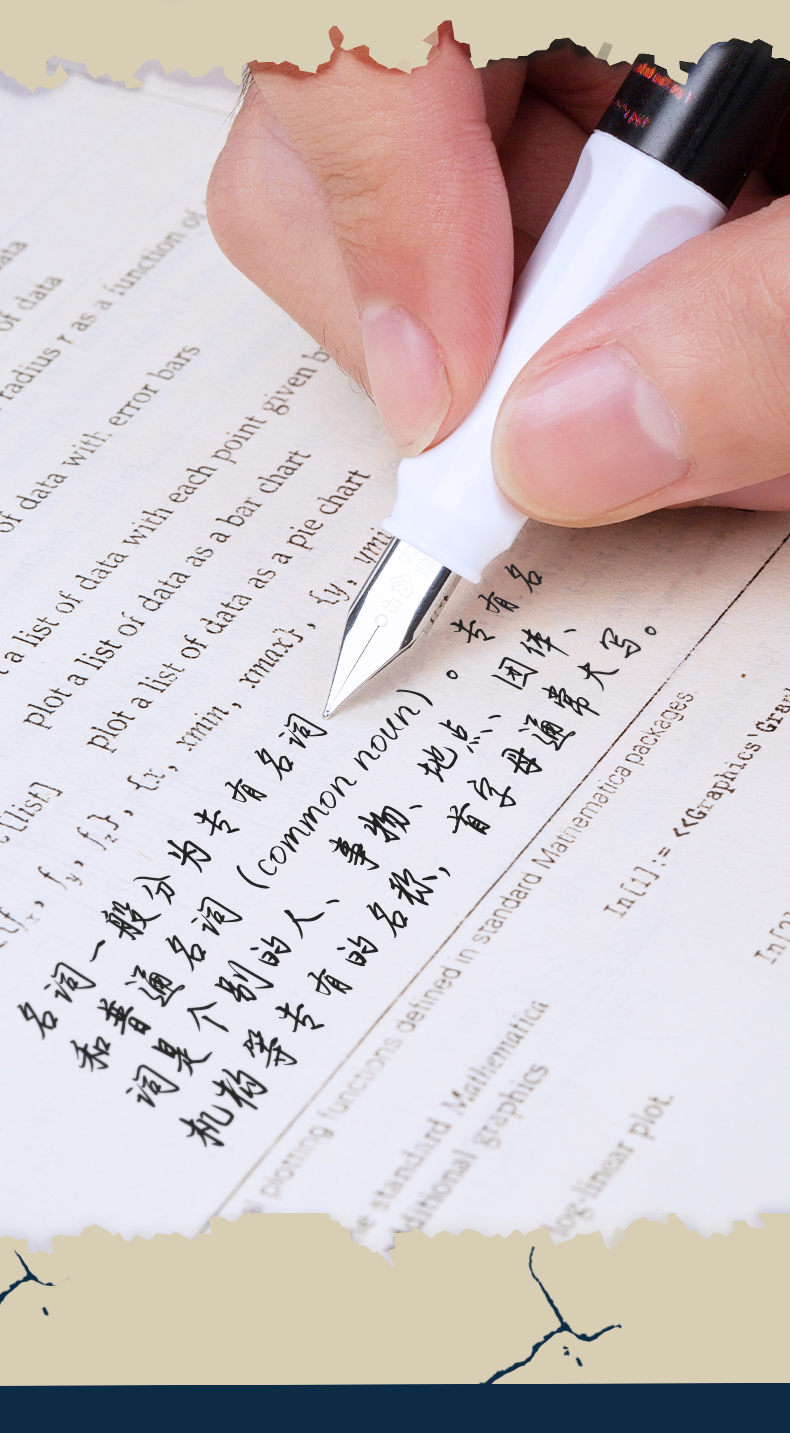 ata
of data
radius r as a function of
of data with error bars
a list of data with each point given b
plot a list of data as a bar chart
plot a list of data as a pie chart
[list]
{fx, fy, fz}, {x, xmin, xmax}, {y, ymi
名词一般分为专有名词
和普通名词(common noun)。专有名
词是个别的人、事物、地点、团体、
机构等专有的名称，首字母通常大写。
plotting functions defined in standard Mathematica packages.
In[1]:= <<Graphics`Grap
In[2]
e standard Mathematica
dditional graphics
log-linear plot.